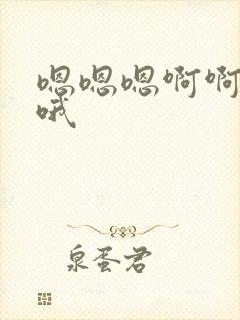 嗯嗯嗯啊啊
哦
泉蛋君